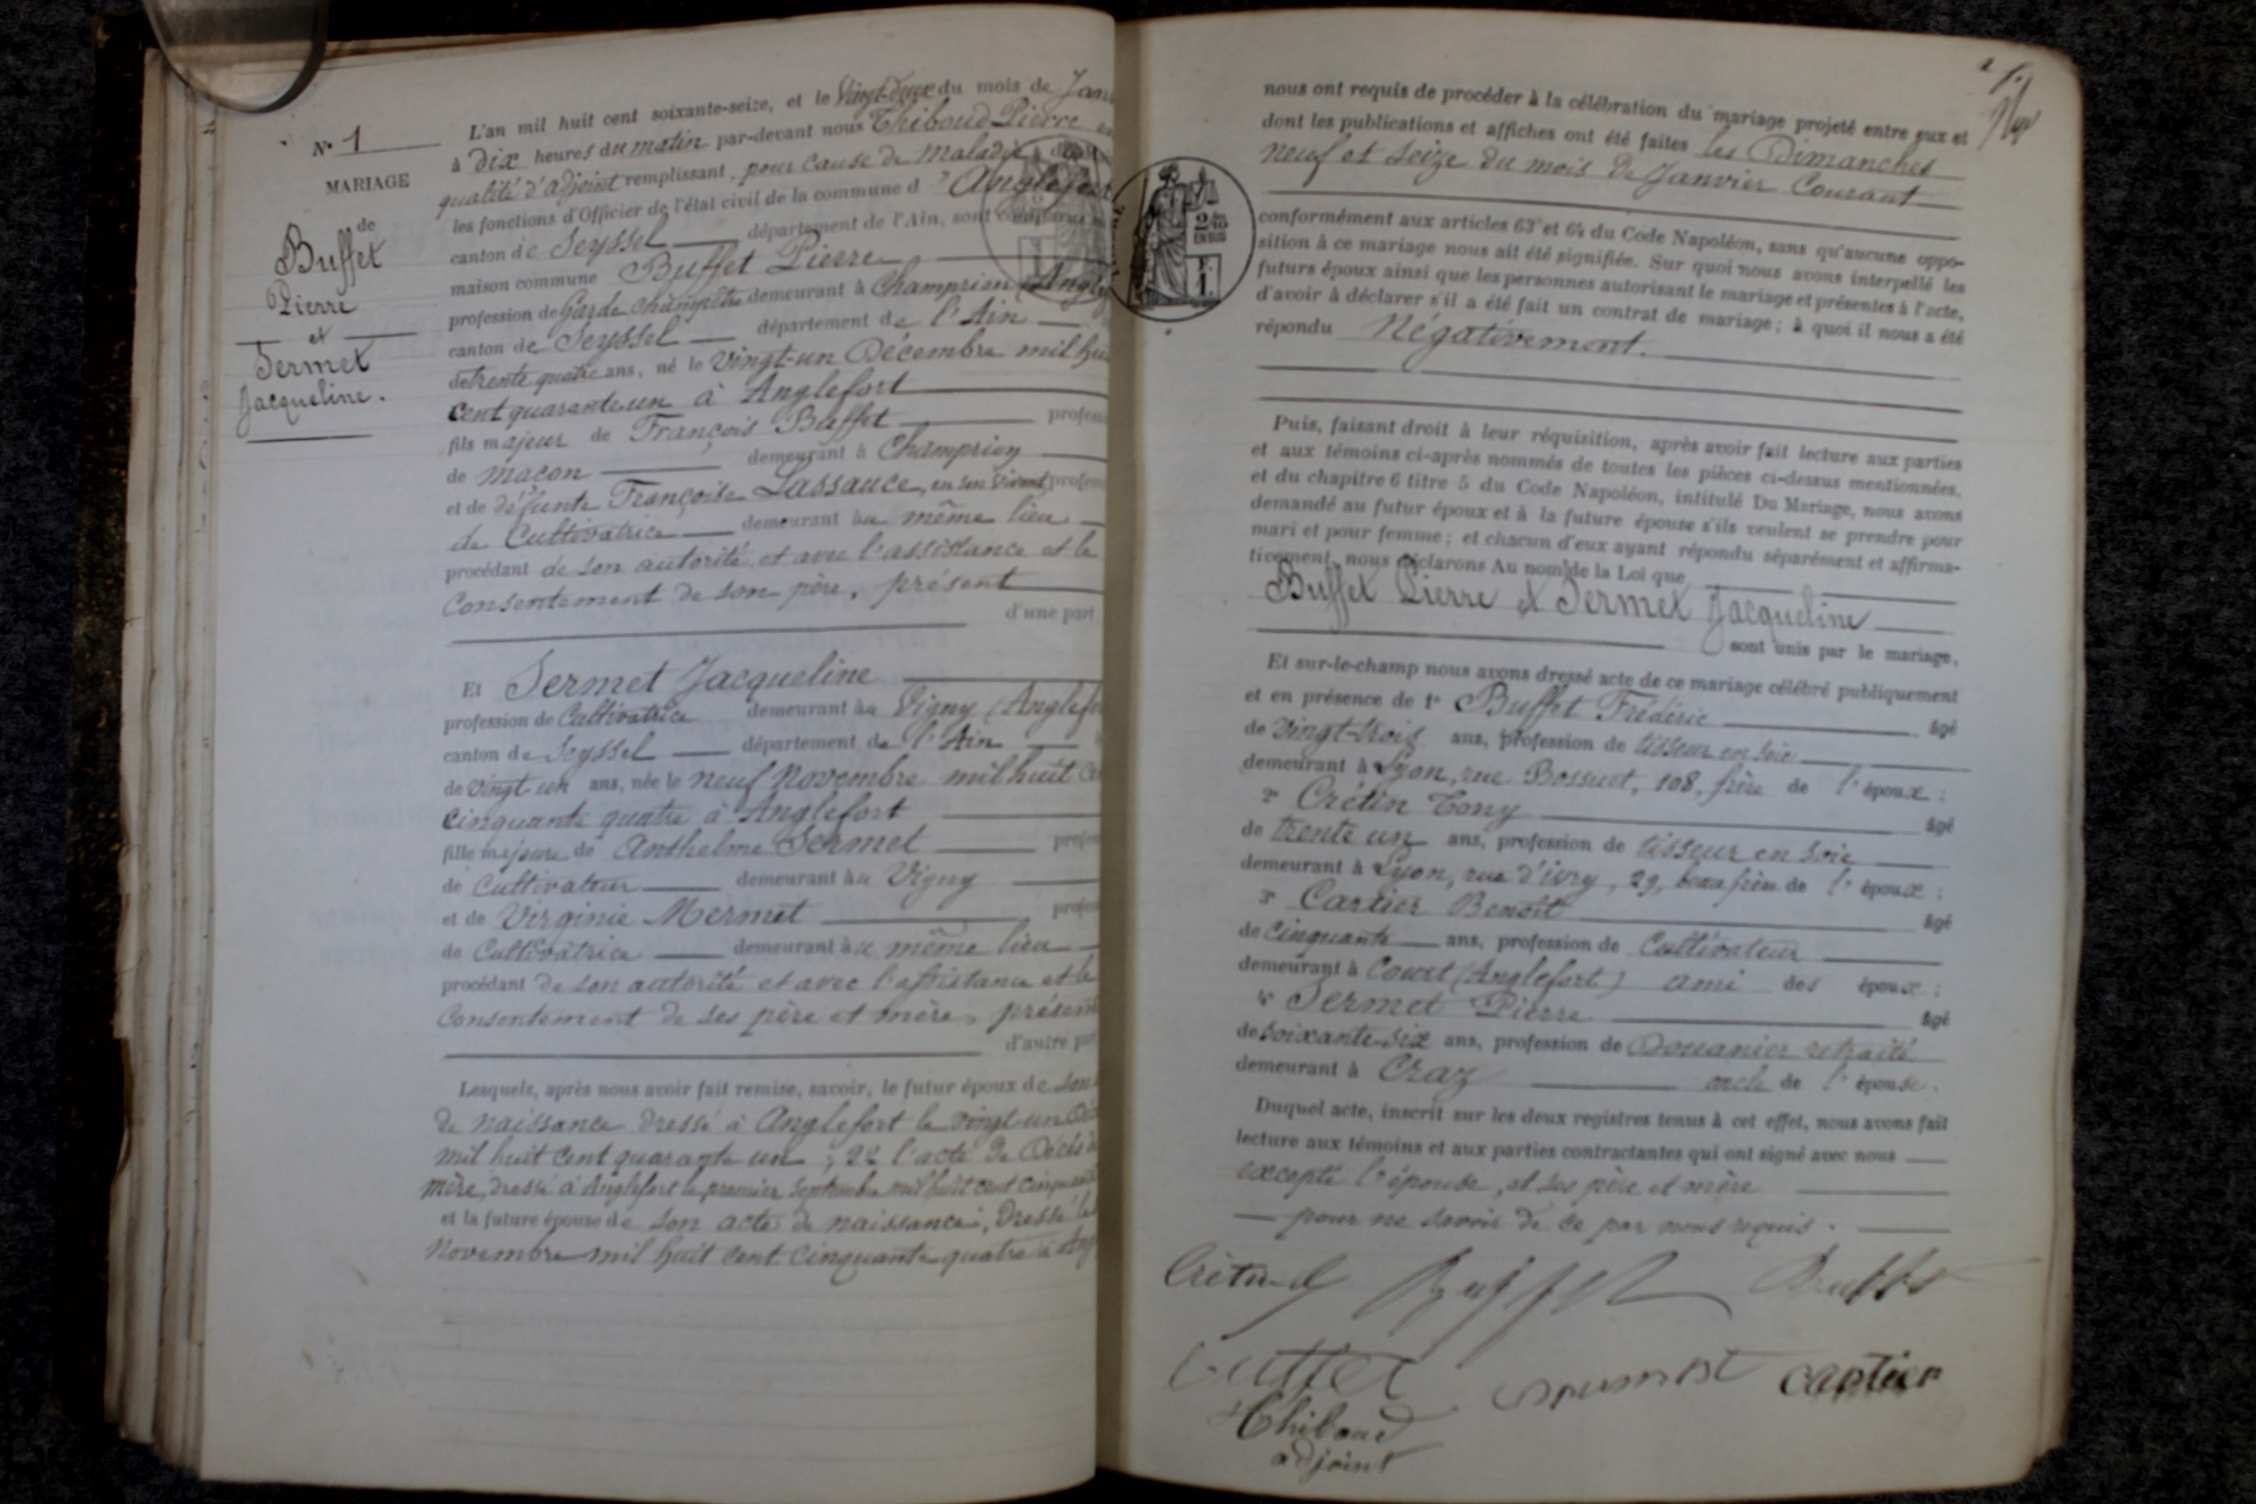 N° 1
MARIAGE
de
Buffet
Pierre
et
Sermet
Jacqueline.
L'an mil huit cent soixante-seize, et le Vingt-deux du mois de Janv
à dix heures du matin par-devant nous Thiboud Pierre en
qualité d'adjoint remplissant, pour cause de maladie
les fonctions d'Officier de l'état civil de la commune d'Anglefort
canton de Seyssel département de l'Ain, sont comparus
maison commune Buffet Pierre
profession de Garde champêtre demeurant à Champrion (Angle
canton de Seyssel département de l'Ain
de trente quatre ans, né le vingt-un Décembre mil hui
cent quarante-un à Anglefort
fils majeur de François Buffet profess
de maçon demeurant à Champrion
et de défunte Françoise Lassauce, en son vivant profess
de Cultivatrice demeurant au même lieu
procédant de son autorité et avec l'assistance et le
Consentement de son père, présent
d'une part
Et Sermet Jacqueline
profession de Cultivatrice demeurant à Vigny (Anglefo
canton de Seyssel département de l'Ain
de vingt-un ans, née le neuf Novembre mil huit ce
cinquante quatre à Anglefort
fille majeure de Anthelme Sermet profes
de Cultivateur demeurant à Vigny
et de Virginie Mermet profes
de Cultivatrice demeurant au même lieu
procédant de son autorité et avec l'assistance et le
Consentement de ses père et mère, présent
d'autre par
Lesquels, après nous avoir fait remise, savoir, le futur époux de son
de naissance dressé à Anglefort le vingt-un Déc
mil huit cent quarante un ; 2° l'acte de Décès de
mère, dressé à Anglefort le premier Septembre mil huit cent cinquante
et la future épouse de son acte de naissance, dressé le
Novembre mil huit cent cinquante quatre à Ang
nous ont requis de procéder à la célébration du mariage projeté entre eux et
dont les publications et affiches ont été faites les Dimanches
neuf et seize du mois de Janvier Courant
conformément aux articles 63 et 64 du Code Napoléon, sans qu'aucune oppo-
sition à ce mariage nous ait été signifiée. Sur quoi nous avons interpellé les
futurs époux ainsi que les personnes autorisant le mariage et présentes à l'acte,
d'avoir à déclarer s'il a été fait un contrat de mariage ; à quoi il nous a été
répondu Négativement.
Puis, faisant droit à leur réquisition, après avoir fait lecture aux parties
et aux témoins ci-après nommés de toutes les pièces ci-dessus mentionnées,
et du chapitre 6 titre 5 du Code Napoléon, intitulé Du Mariage, nous avons
demandé au futur époux et à la future épouse s'ils veulent se prendre pour
mari et pour femme ; et chacun d'eux ayant répondu séparément et affirma-
tivement, nous déclarons Au nom de la Loi que
Buffet Pierre et Sermet Jacqueline
sont unis par le mariage,
Et sur-le-champ nous avons dressé acte de ce mariage célébré publiquement
et en présence de 1° Buffet Frédéric âgé
de vingt-trois ans, profession de tisseur en soie
demeurant à Lyon, rue Bossuet, 108, frère de l'époux ;
2° Crétin Tony âgé
de trente un ans, profession de tisseur en soie
demeurant à Lyon, rue d'ivry, 29, beau frère de l'époux ;
3° Cartier Benoît âgé
de cinquante ans, profession de Cultivateur
demeurant à Court (Anglefort) ami des époux ;
4° Sermet Pierre âgé
de soixante-six ans, profession de Douanier retraité
demeurant à Craz oncle de l'épouse.
Duquel acte, inscrit sur les deux registres tenus à cet effet, nous avons fait
lecture aux témoins et aux parties contractantes qui ont signé avec nous
excepté l'épouse, et ses père et mère
pour ne savoir de ce par nous requis.
Crétin Buffet Buffet
Buffet Sermet Cartier
Thiboud
adjoint